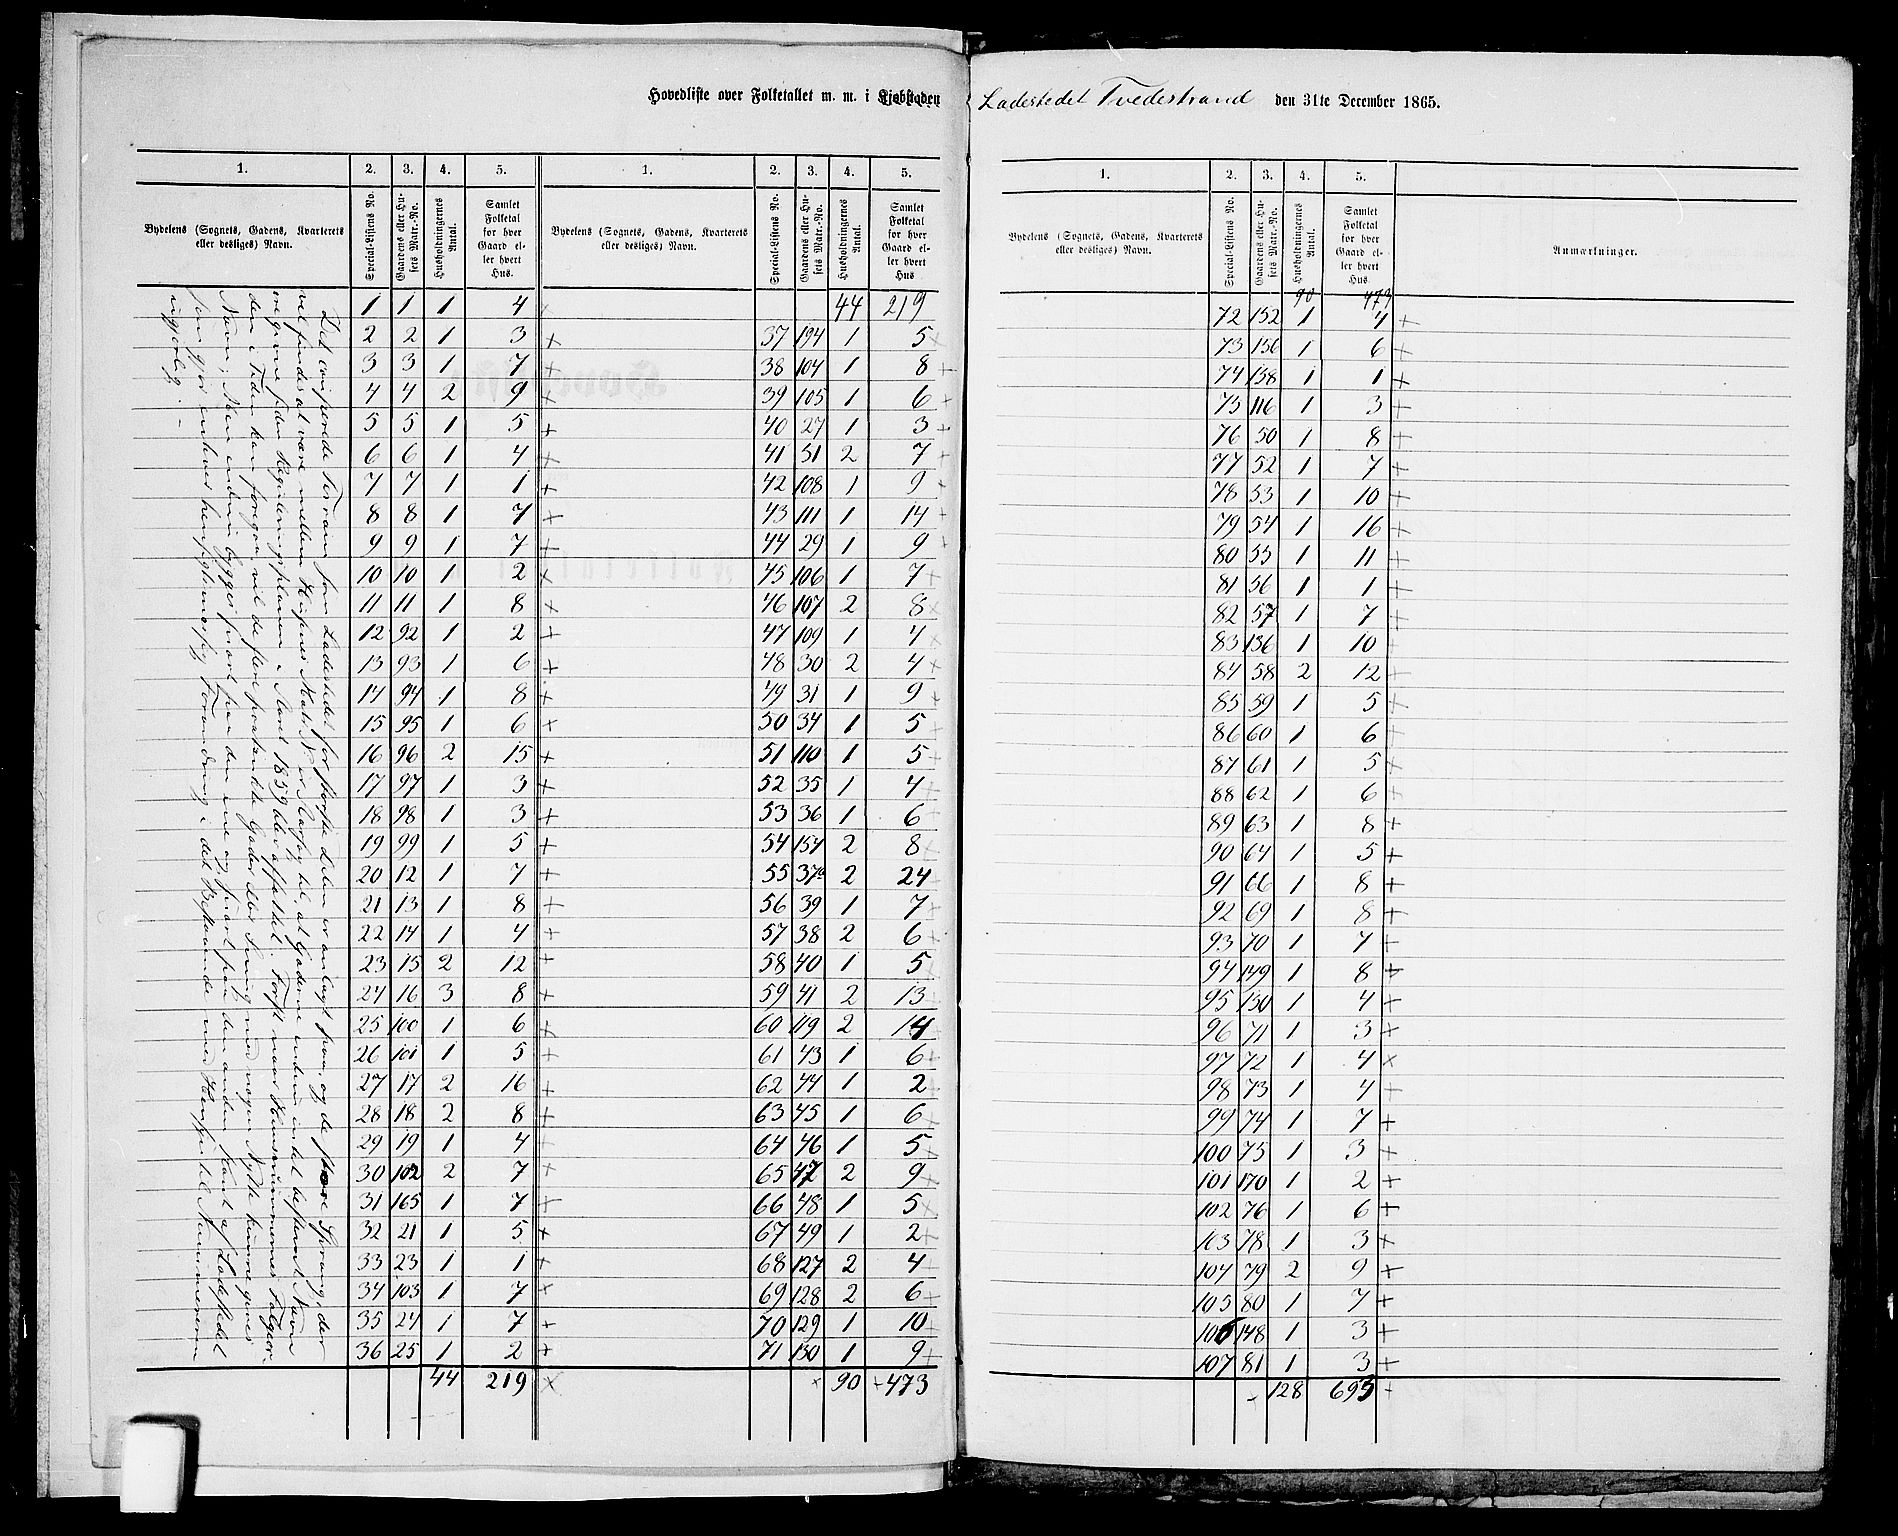 Hovedliste over Folketallet m. m. i Kjøbstaden Ladestedet Tvedestrand den 31te December 1865.
1. 2. 3. 4. 5. 1. 2. 3. 4. 5.
Bydelens (Sognets, Gadens, Kvarterets eller desliges) Navn. Special-Listens No. Gaardens eller Husets Matr.-No. Husholdningernes Antal. Samlet Folketal for hver Gaard eller hvert Hus. Bydelens (Sognets, Gadens, Kvarterets eller desliges) Navn. Special-Listens No. Gaardens eller Husets Matr.-No. Husholdningernes Antal. Samlet Folketal for hver Gaard eller hvert Hus
1 1 1 4 44 219
2 2 1 3 + 37 194 1 5 +
3 3 1 7 + 38 104 1 8 +
4 4 2 9 + 39 105 1 6 +
5 5 1 5 + 40 27 1 3 +
6 6 1 4 + 41 51 2 7 +
7 7 1 1 + 42 108 1 9 +
8 8 1 7 + 43 111 1 14 +
9 9 1 7 + 44 29 1 9 +
10 10 1 2 + 45 106 1 7 +
11 11 1 8 + 46 107 2 8 +
12 92 1 2 + 47 109 1 4 +
13 93 1 6 + 48 30 2 4 +
14 94 1 8 + 49 31 1 9 +
15 95 1 6 + 50 34 1 5 +
16 96 2 15 + 51 110 1 5 +
17 97 1 3 + 52 35 1 4 +
18 98 1 3 + 53 36 1 6 +
19 99 1 5 + 54 154 2 8 +
20 12 1 7 + 55 37a 2 24 +
21 13 1 8 + 56 39 1 7 +
22 14 1 4 + 57 38 2 6 +
23 15 2 12 + 58 40 1 5 +
24 16 3 8 + 59 41 2 13 +
25 100 1 6 + 60 119 2 14
26 101 1 5 + 61 43 1 6 +
27 17 2 16 + 62 44 1 2 +
28 18 2 8 + 63 45 1 6 +
29 19 1 4 + 64 46 1 5 +
30 102 2 7 + 65 47 2 9 +
31 165 1 7 + 66 48 1 5 +
32 21 1 5 + 67 49 1 2 +
33 23 1 1 + 68 127 2 4 +
34 103 1 7 + 69 128 2 6 +
35 24 1 7 + 70 129 1 10 +
36 25 1 2 + 71 130 1 9 +
44 219 × 90 + 473
Det ... Terrain for Ladestedet for største Delen er anlagt paa, og de store Sprang, der
vil findes at være mellem Husenes Matr. No. er Aarsag til, at Gaderne endnu intet bestemt Navn
... give, siden Reguleringsplanen i Aaret 1859 blev affattet. Først naar Husenummernes Følgeor-
den i Tiden kan foregaa, vil de flere paatænkte Gader ... med nogen Nytte kunne gives
Navn; Men endnu bygges snart paa den ene og snart paa den anden Kant af Ladestedet
som gjør enhver hensigtsmæssig Forandring i det Bestaaende med Hensyn til Nummerne
ugjørlig. -
1. 2. 3. 4. 5.
Bydelens (Sognets, Gadens, Kvarterets eller desliges) Navn. Special-Listens No. Gaardens eller Husets Matr.-No. Husholdningernes Antal. Samlet Folketal for hver Gaard eller hvert Hus Anmærkninger.
90 473
72 152 1 4 +
73 156 1 6 +
74 158 1 1 +
75 116 1 3 +
76 50 1 8 +
77 52 1 7 +
78 53 1 10 +
79 54 1 16 +
80 55 1 11 +
81 56 1 1 +
82 57 1 7 +
83 136 1 10 +
84 58 2 12 +
85 59 1 5 +
86 60 1 6 +
87 61 1 5 +
88 62 1 6 +
89 63 1 8 +
90 64 1 5 +
91 66 1 8 +
92 69 1 8 +
93 70 1 7 +
94 149 1 8 +
95 150 1 4 +
96 71 1 3 +
97 72 1 4 ×
98 73 1 4 +
99 74 1 7 +
100 75 1 3 +
101 170 1 2 +
102 76 1 6 +
103 78 1 3 +
104 79 2 9 +
105 80 1 7 +
106 148 1 3 +
107 81 1 3 +
128 695